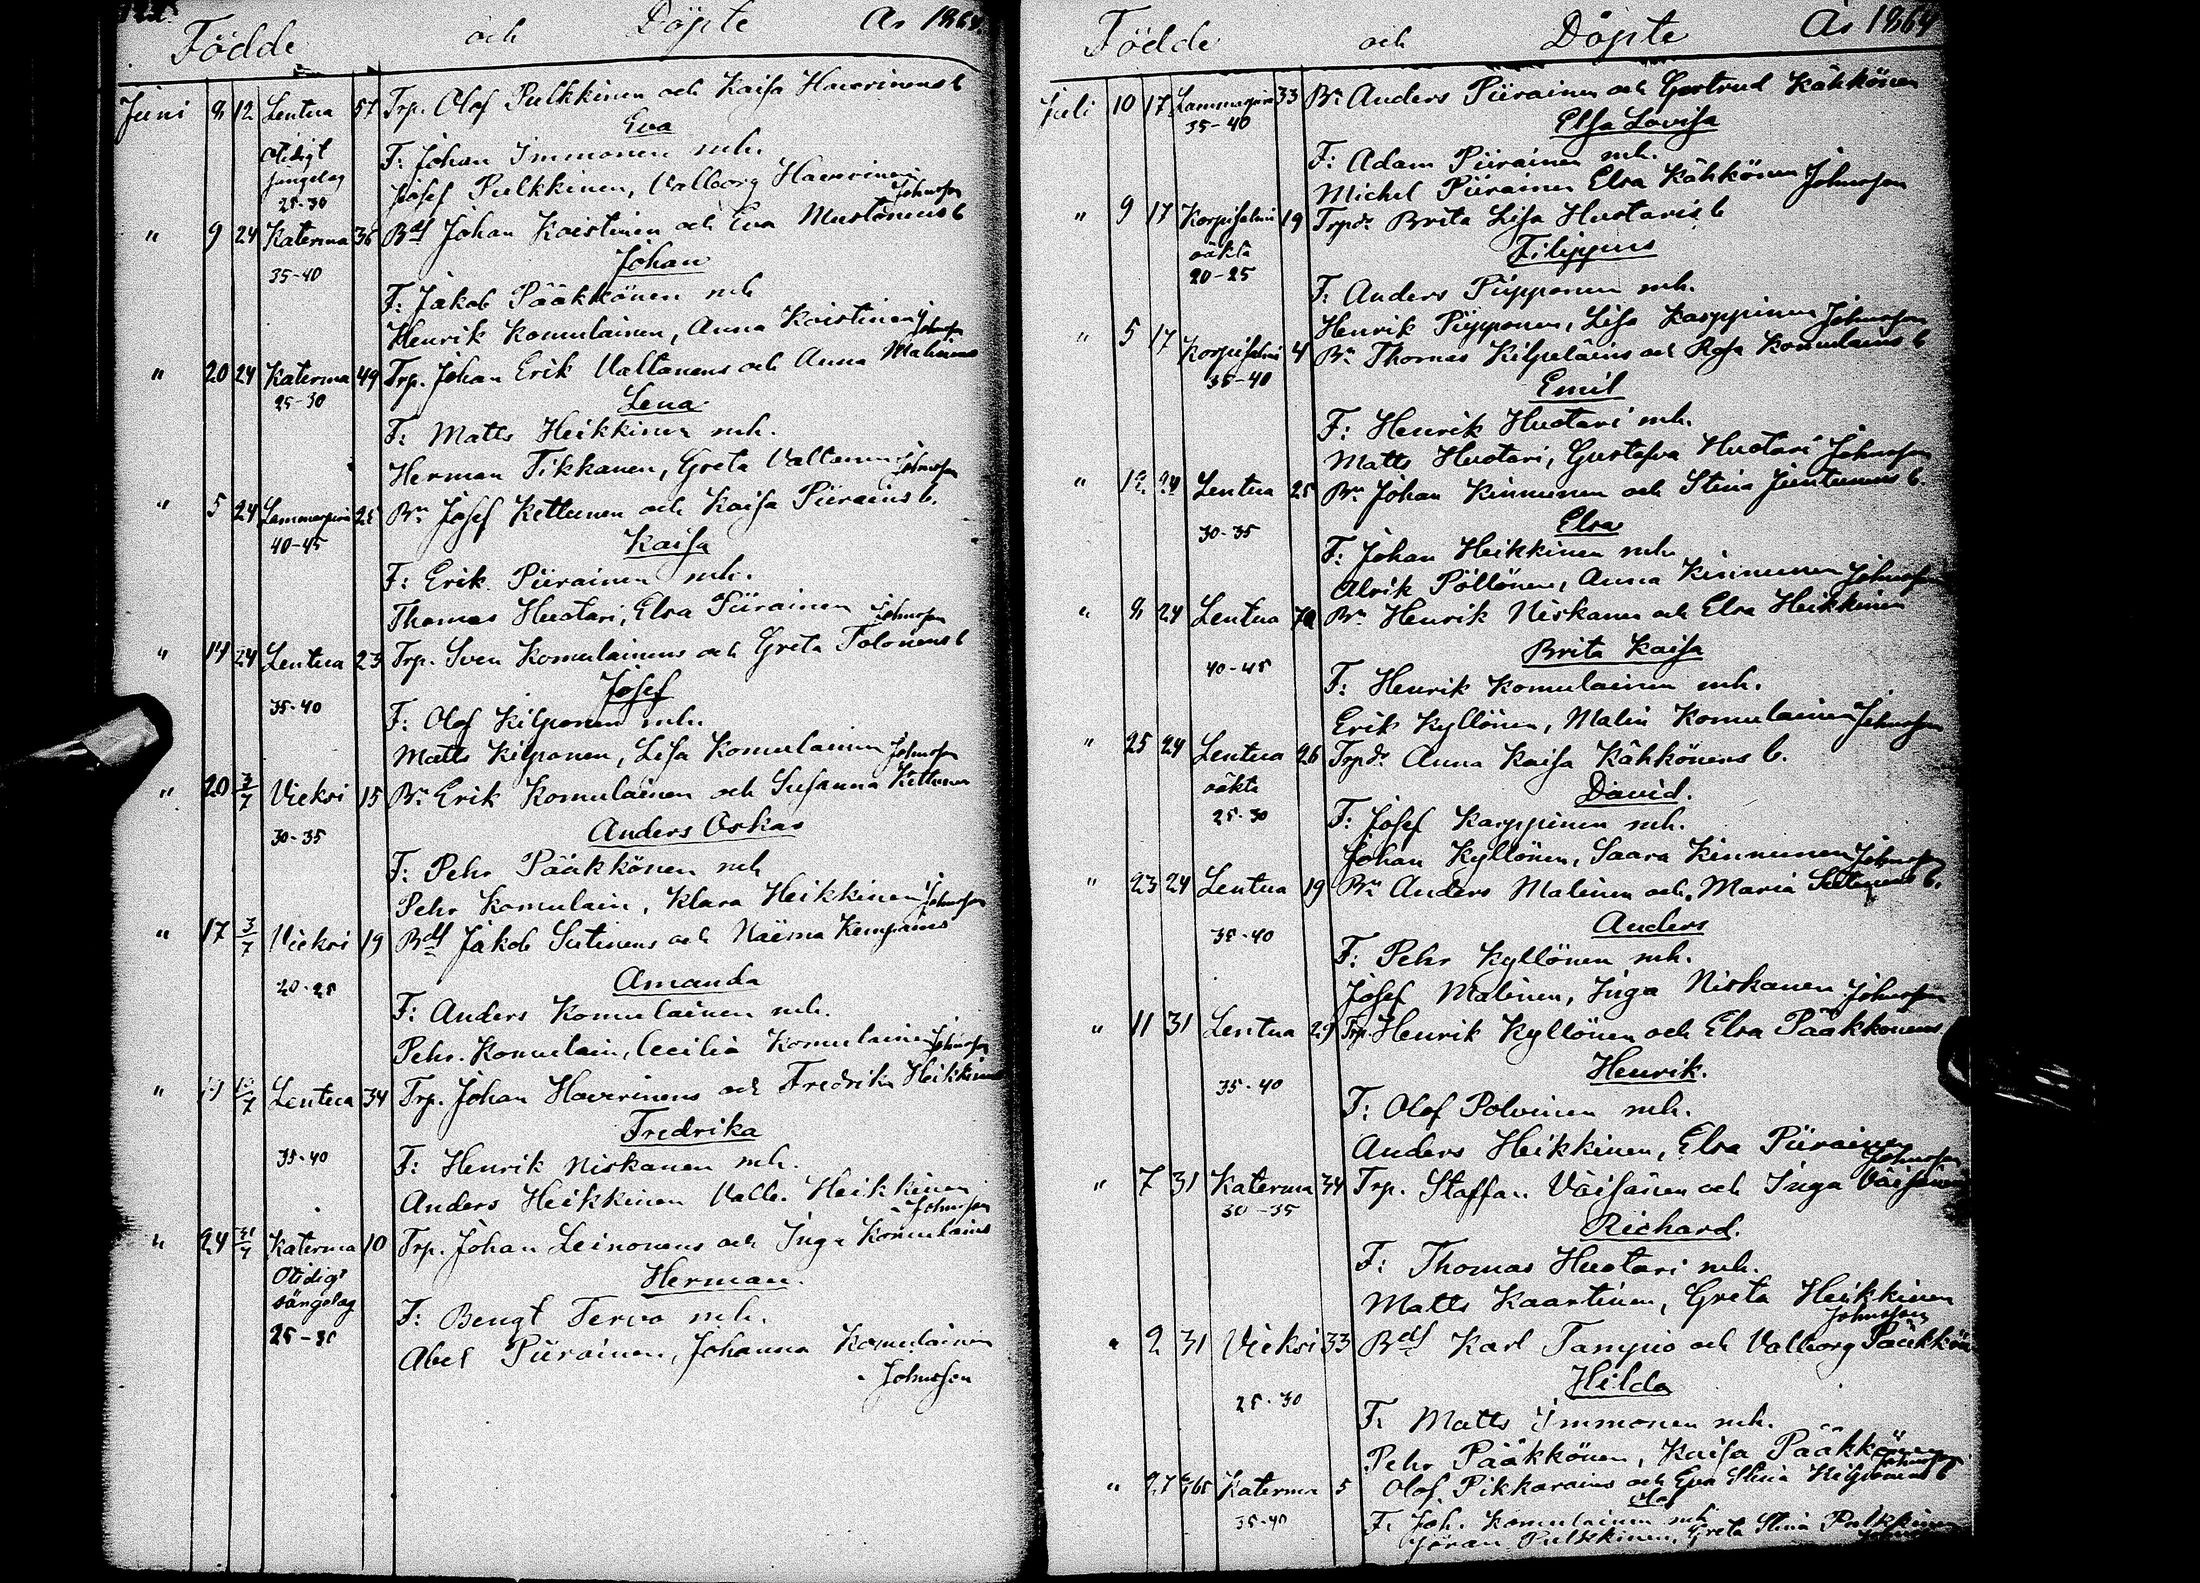 Födde och Döpte År 1864.
Juni 8 12 Lentua 57 Trp. Olof Pulkkinen och Kaisa Haverinens b
Eva
Otidigt F: Johan Immonen m.h.
sängelag Josef Pulkkinen, Valborg Haverinen Johnsson
25-30
" 9 24 Katerma 36 Bdf Johan Koistinen och Eva Mustonens b
Johan
35-40
F: Jakob Pääkkönen m.h.
Henrik Komulainen, Anna Koistinen Johnsson
" 20 24 Katerma 49 Trp. Johan Erik Valtanens och Anna Malinens
25-30
Lena
F: Matts Heikkinen m.h.
Herman Tikkanen, Greta Valtanen Johnsson
" 5 24 Lammasperä 25 Bn Josef Kettunen och Kaisa Piirains b.
40-45
Kaisa
F: Erik Piirainen m.h.
Thomas Huotari, Elsa Piirainen Johnsson
" 14 24 Lentua 23 Trp. Sven Komulainens och Greta Tolonens b
Josef
35-40
F: Olof Kilponen m.h.
Matts Kilponen, Lisa Komulainen Johnsson
" 20 3/7 Vieksi 15 Bn Erik Komulainen och Susanna Kettunen
Anders Oskar
30-35
F: Pehr Pääkkönen m.h.
Pehr Komulain, Klara Heikkinen Johnsson
" 17 3/7 Vieksi 19 Bdf Jakob Sutinens och Naëma Kempains
Amanda
20-25
F: Anders Komulainen m.h.
Pehr Komulain, Cecilia Komulainen Johnsson
" Lentua 34 Trp. Johan Haverinens och Fredrika Heikkinens
Fredrika
35-40
F: Henrik Niskanen m.h.
Anders Heikkinen Valb. Heikkinen
Johnsson
" 24 31/7 Katerma 10 Trp. Johan Leinonens och Inga Komulains
Otidigt
Herman.
sängelag
F: Bengt Tervo m.h.
25-30
Abel Piirainen, Johanna Komulainen
Johnsson
Födde och Döpte År 1864
Juli 10 17 Lammasperä 33 Bn Anders Piirainen och Gertrud Kähkönen
35-40
Elsa Lovisa
F: Adam Piirainen m.h.
Michel Piirainen Elsa Kähkönen Johnsson
" 9 17 Korpisalmi 19 Trpdr Brita Lisa Huotaris b
oäkta
Filippus
20-25
F: Anders Piipponen m.h.
Henrik Piipponen, Lisa Karppinen Johnsson
" 5 17 Korpisalmi 4 Bn Thomas Kilpeläins och Rosa Komulains b
35-40
Emil
F: Henrik Huotari m.h.
Matts Huotari, Gustafva Huotari Johnsson
" 12 24 Lentua 25 Bn Johan Kinnunen och Stina Juntunens b.
Elsa
30-35
F: Johan Heikkinen m.h.
Alrik Pöllönen, Anna Kinnunen Johnsson
" 8 24 Lentua 70 Bn Henrik Niskanen och Elsa Heikkinen
Brita Kaisa
40-45
F: Henrik Komulainen m.h.
Erik Kyllönen, Malin Komulainen Johnsson
" 25 24 Lentua 26 Trpdr Anna Kaisa Kähkönens b.
oäkta
David.
25-30
F: Josef Karppinen m.h.
Johan Kyllönen, Saara Kinnunen Johnsson
" 23 24 Lentua 19 Bn Anders Malinen och Maria b.
Anders
35-40
F: Pehr Kyllönen m.h.
Josef Malinen, Inga Niskanen Johnsson
" 11 31 Lentua 29 Trp. Henrik Kyllönen och Elsa Pääkkönens
Henrik.
35-40
F: Olof Polvinen m.h.
Anders Heikkinen, Elsa Piirainen
Johnsson
" 7 31 Katerma 34 Trp. Staffan Väisänen och Inga Väisänen
30-35
Richard.
F: Thomas Huotari m.h.
Matts Kaartinen, Greta Heikkinen
Johnsson
" 2 31 Vieksi 33 Bdf Karl Tampio och Valborg Pääkkön
Hilda
25-30
F: Matts Immonen m.h.
Pehr Pääkkönen, Kaisa Pääkkönen
Johnsson
" 27 Katerma 5 Olof Pikkarains och Eva Stina Kilponens b
Olof
35-40
F: Joh. Komulainen m.h.
Göran Pulkkinen, Greta Stina Pulkkinen